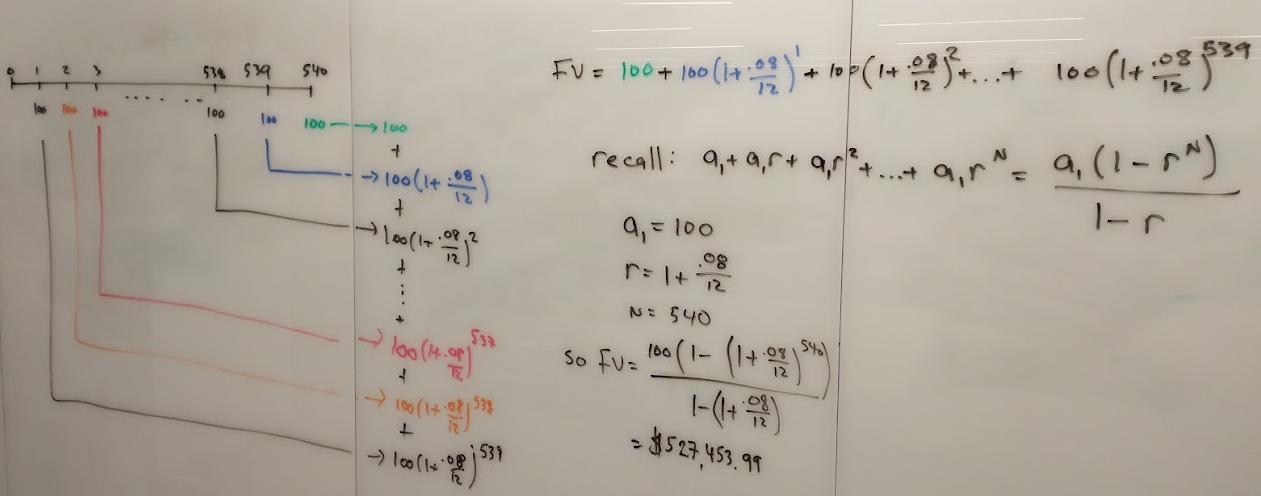 0 1 2 3 538 539 540
100 100 100 ...... 100 100 100 → 100
+
→ 100(1+.08/12)
+
→ 100(1+.08/12)^2
+
⋮
+
→ 100(1+.08/12)^537
+
→ 100(1+.08/12)^538
+
→ 100(1+.08/12)^539
FV = 100 + 100(1+.08/12)^1 + 100(1+.08/12)^2 + ... + 100(1+.08/12)^539
recall: a₁ + a₁r + a₁r^2 + ... + a₁r^N = a₁(1-r^N)/1-r
a₁ = 100
r = 1+.08/12
N = 540
So FV = 100(1-(1+.08/12)^540)/1-(1+.08/12)
= $527,453.99